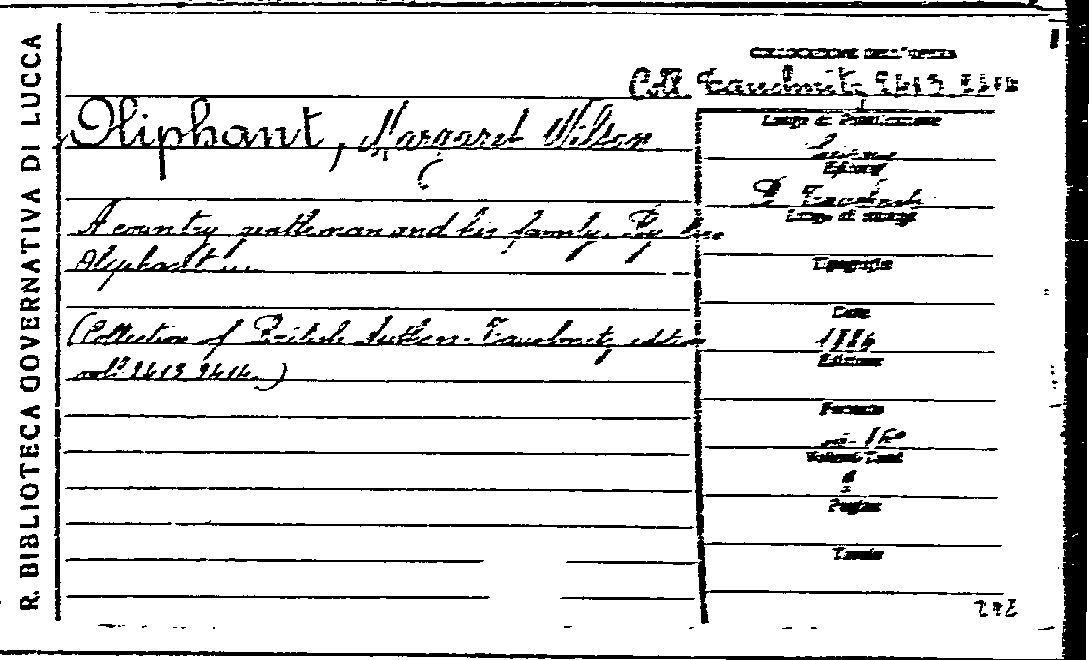 R. BIBLIOTECA GOVERNATIVA DI LUCCA
COLLOCAZIONE DELL'OPERA
Coll. Tauchnitz 2413 2414
Oliphant, Margaret Wilson
A country gentleman and his family. By
Oliphant ...
(Collection of British Authors. Tauchnitz edition
vol. 2413 2414.)
Luogo di Pubblicazione
Editore
B. Tauchnitz
Luogo di stampa
Tipografia
Data
1886
Edizione
Formato
in-16°
Volumi Tomi
2
Pagine
Tavole